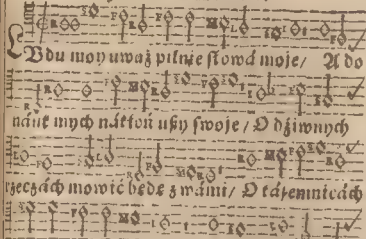 LVdu moy uważ pilnie słowá moje/ A do
náuk mych nákłoń uszy swoje/ O dźiwnych
rzeczách mowić będę z wámi/ O tájemnicách